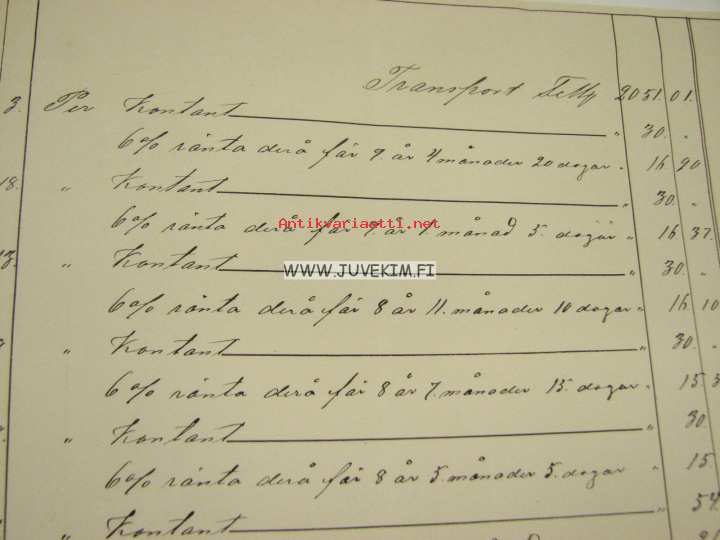 Transport Fmk 2051.01.
3. Per Kontant " 30. "
6% ränta derå för 9. år 4 månader 20 dagar " 16 90
18. " Kontant " 30. "
6% ränta derå för 9. år 1. månad 5. dagar " 16 37.
Antikvariaatti.net
13. " Kontant " 30. "
WWW.JUVEKIM.FI
6% ränta derå för 8 år 11. månader 10 dagar " 16 10
" Kontant " 30. "
6% ränta derå för 8 år 7. månader 15. dagar " 15.
" Kontant " 30.
6% ränta derå för 8 år 5. månader 5. dagar " 15.
" Kontant " 54.